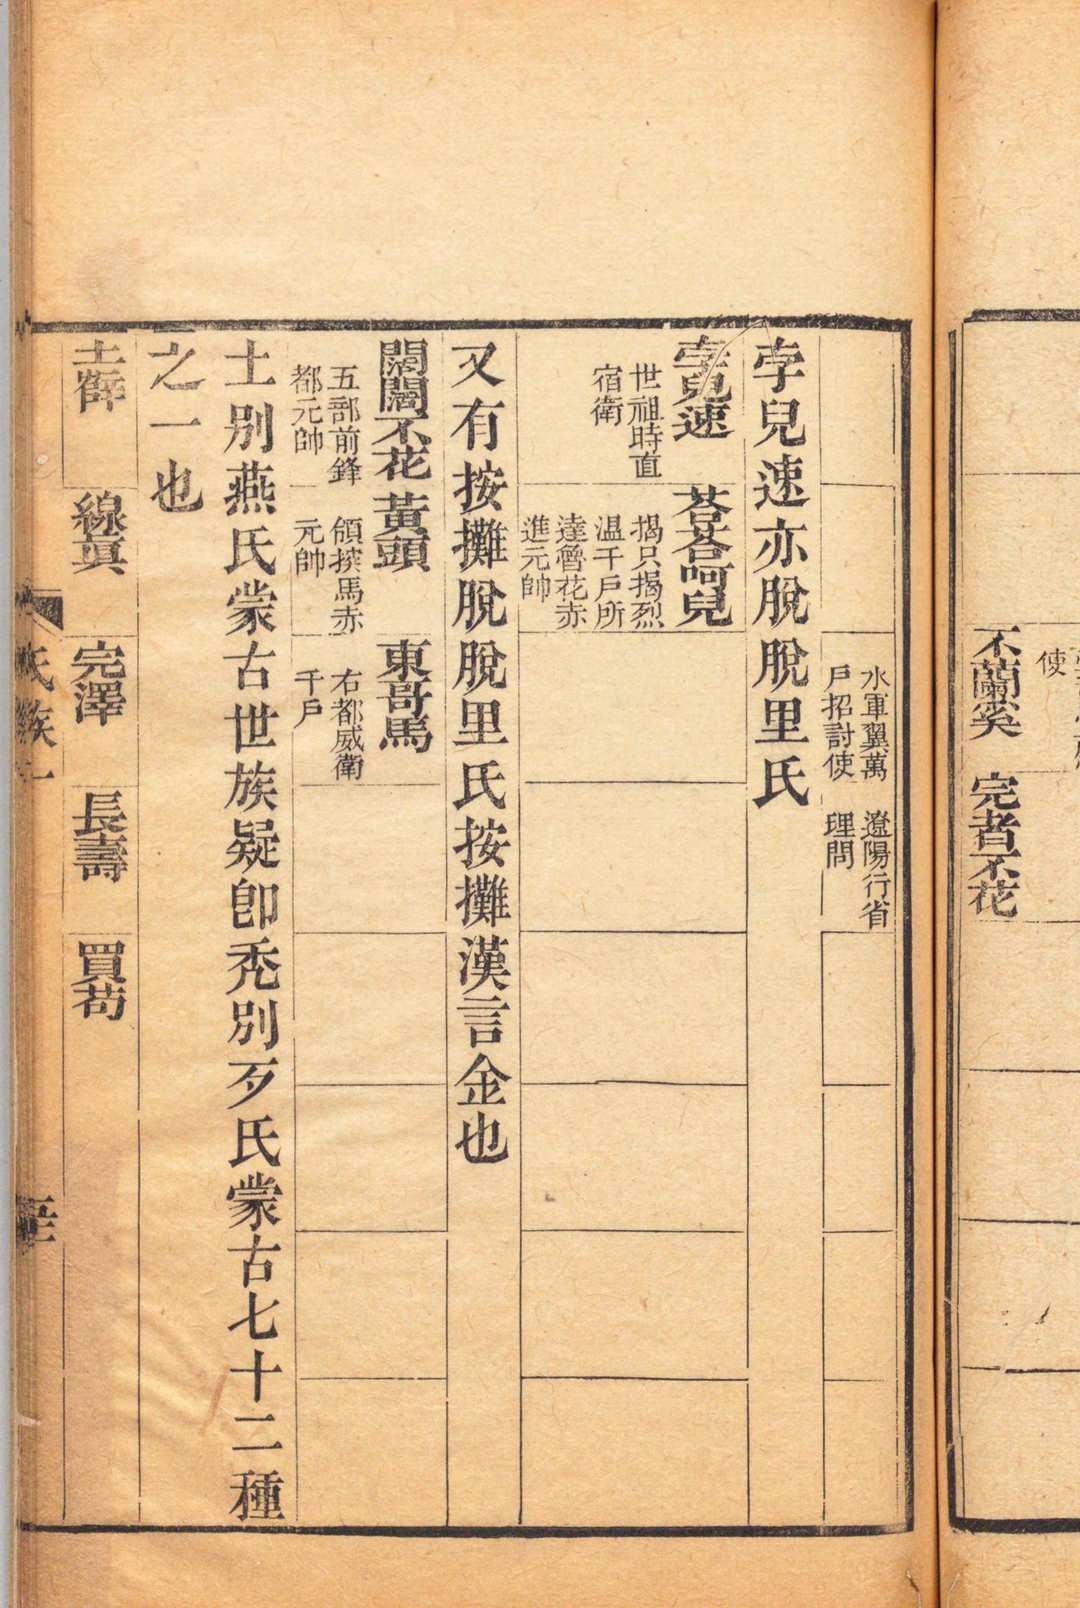 使
不蘭奚　完者不花
水軍翼萬　遼陽行省
戶招討使　理問
孛兒速亦脫脫里氏
孛兒速　荅荅呵兒
世祖時直
宿衛
揭只揭烈
溫千戶所
達魯花赤
進元帥
又有按攤脫脫里氏按攤漢言金也
闊闊不花　黃頭　東哥馬
五部前鋒
都元帥
領探馬赤
元帥
右都威衛
千戶
土別燕氏蒙古世族疑卽禿別歹氏蒙古七十二種
之一也
土薛　線眞　完澤　長壽　買苟
氏族一